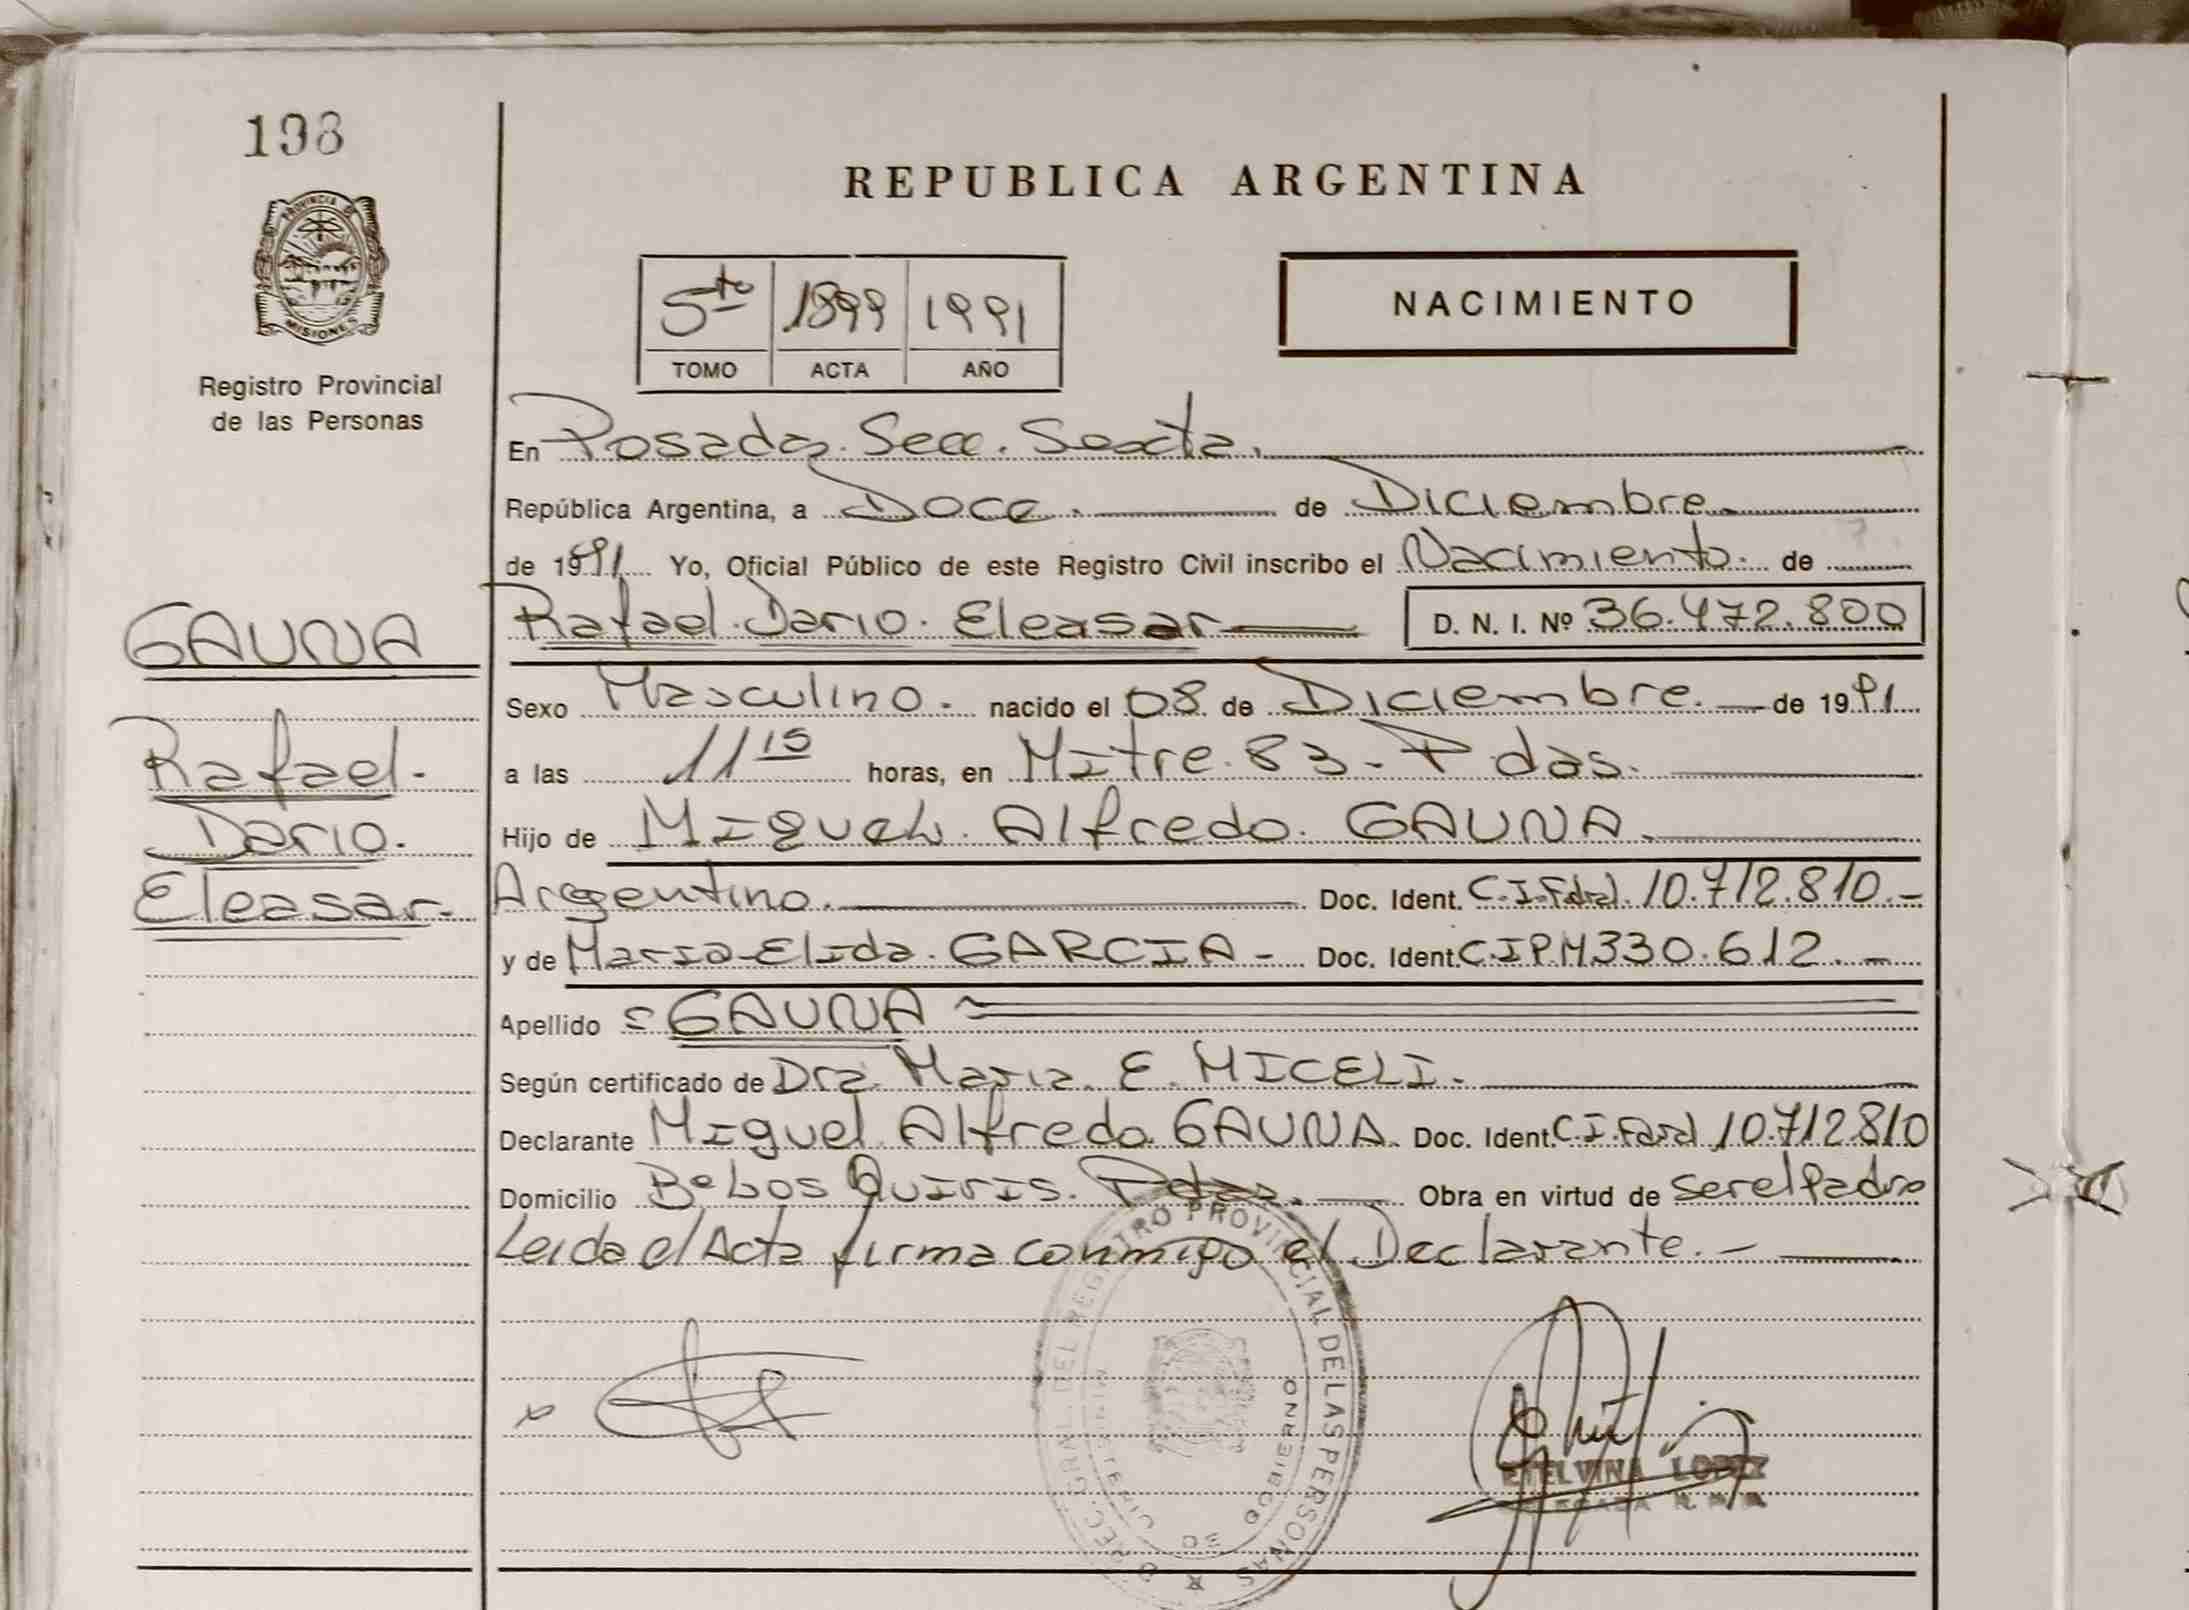 198
PROVINCIA DE
MISIONES
Registro Provincial
de las Personas
REPUBLICA ARGENTINA
5to 1899 1991
TOMO ACTA AÑO
NACIMIENTO
En Posadas. Secc. Sexta.
República Argentina, a Doce. de Diciembre.
de 1991 Yo, Oficial Público de este Registro Civil inscribo el Nacimiento. de
Rafael. Dario. Eleasar D. N. I. Nº 36.472.800
GAUNA
Rafael.
Dario.
Eleasar.
Sexo Masculino. nacido el 08 de Diciembre. de 1991
a las 11 15 horas, en Mitre. 83 - Pdas.
Hijo de Miguel. Alfredo. GAUNA.
Argentino. Doc. Ident. C.I.Fdral. 10.712.810.-
y de Maria Elida. GARCIA - Doc. Ident. C.I.P.M 330.612. -
Apellido = GAUNA =
Según certificado de Dra. Maria. E. MICELI.
Declarante Miguel Alfredo GAUNA. Doc. Ident. C.I. Fdral 10.712810
Domicilio Bº Los Quiris. Pdas. Obra en virtud de ser el Padre
Leida el Acta firma conmigo el Declarante. -
DIREC. GRAL. DEL REGISTRO PROVINCIAL DE LAS PERSONAS
MINISTERIO DE GOBIERNO
ETELVINA LOPEZ